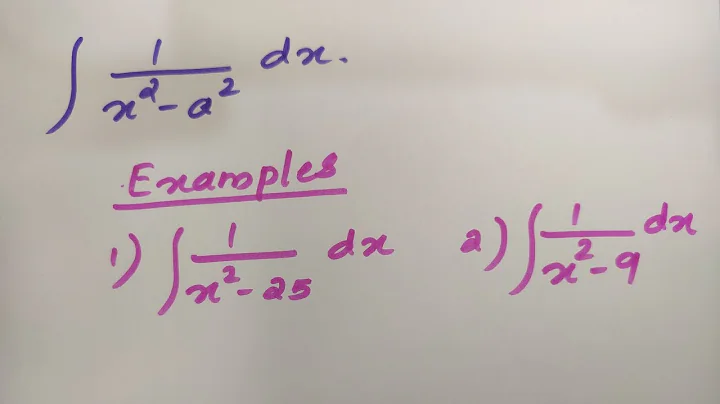 ∫ 1/(x² - a²) dx.
Examples
1) ∫ 1/(x² - 25) dx 2) ∫ 1/(x² - 9) dx